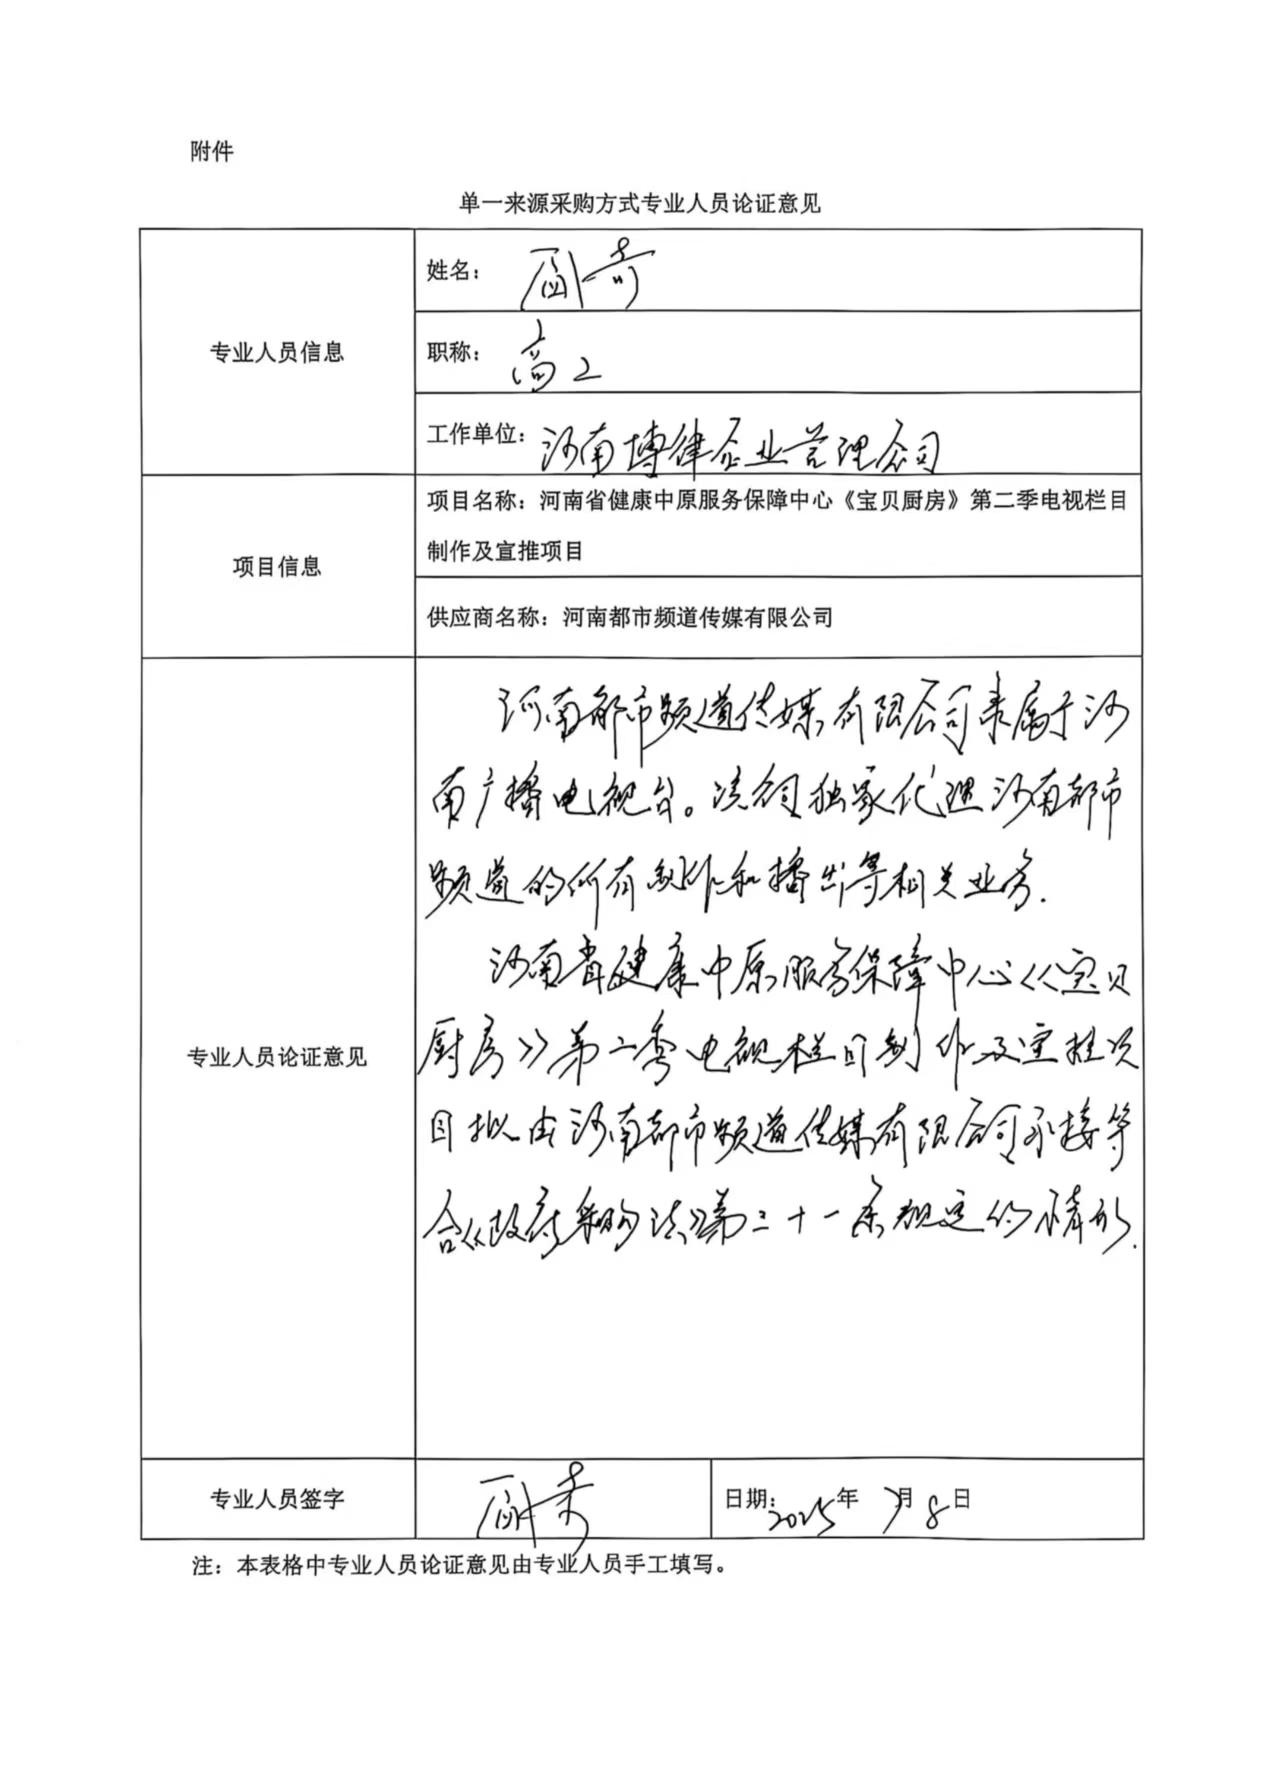 附件
单一来源采购方式专业人员论证意见
专业人员信息
姓名：
职称：高工
工作单位：河南博律企业管理公司
项目信息
项目名称：河南省健康中原服务保障中心《宝贝厨房》第二季电视栏目
制作及宣推项目
供应商名称：河南都市频道传媒有限公司
专业人员论证意见
河南都市频道传媒有限公司隶属于河
南广播电视台。该公司独家代理河南都市
频道的所有制作和播出等相关业务.
河南省健康中原服务保障中心《宝贝
厨房》第二季电视栏目制作及宣推项
目拟由河南都市频道传媒有限公司承接符
合《政府采购法》第三十一条规定的情形.
专业人员签字
日期：2025年7月8日
注：本表格中专业人员论证意见由专业人员手工填写。